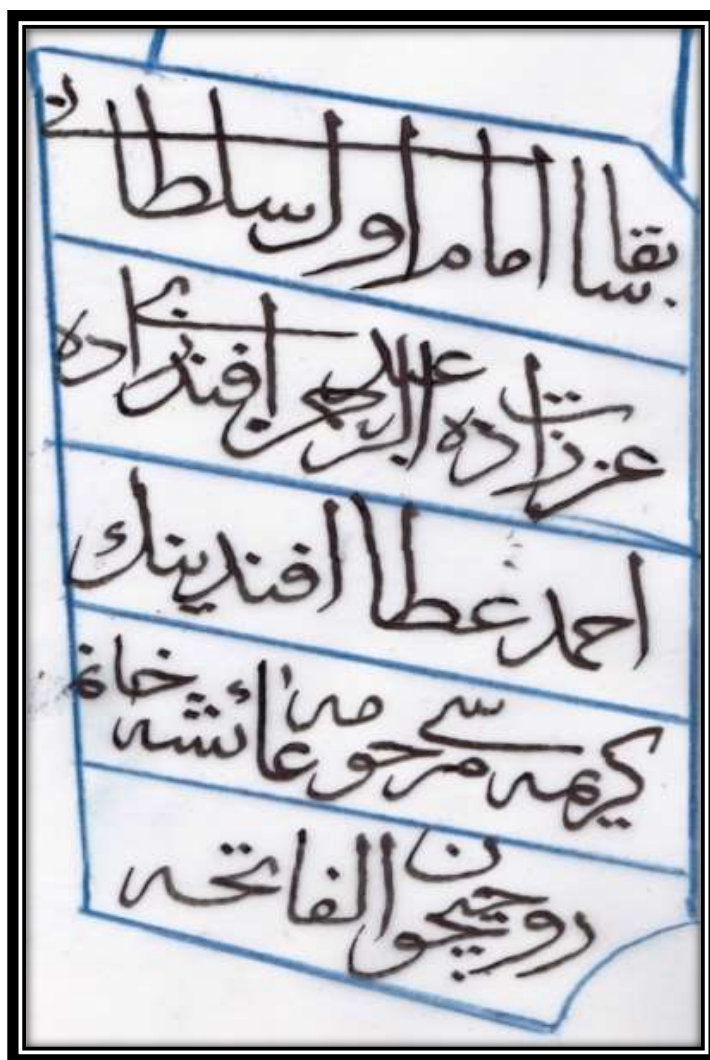 سابقا امام اول سلطانی
عزت زاده عبد الرحمن افندی زاده
احمد عطا افندینك
كریمه سی مرحومه عائشه خانم
روحیچون الفاتحه